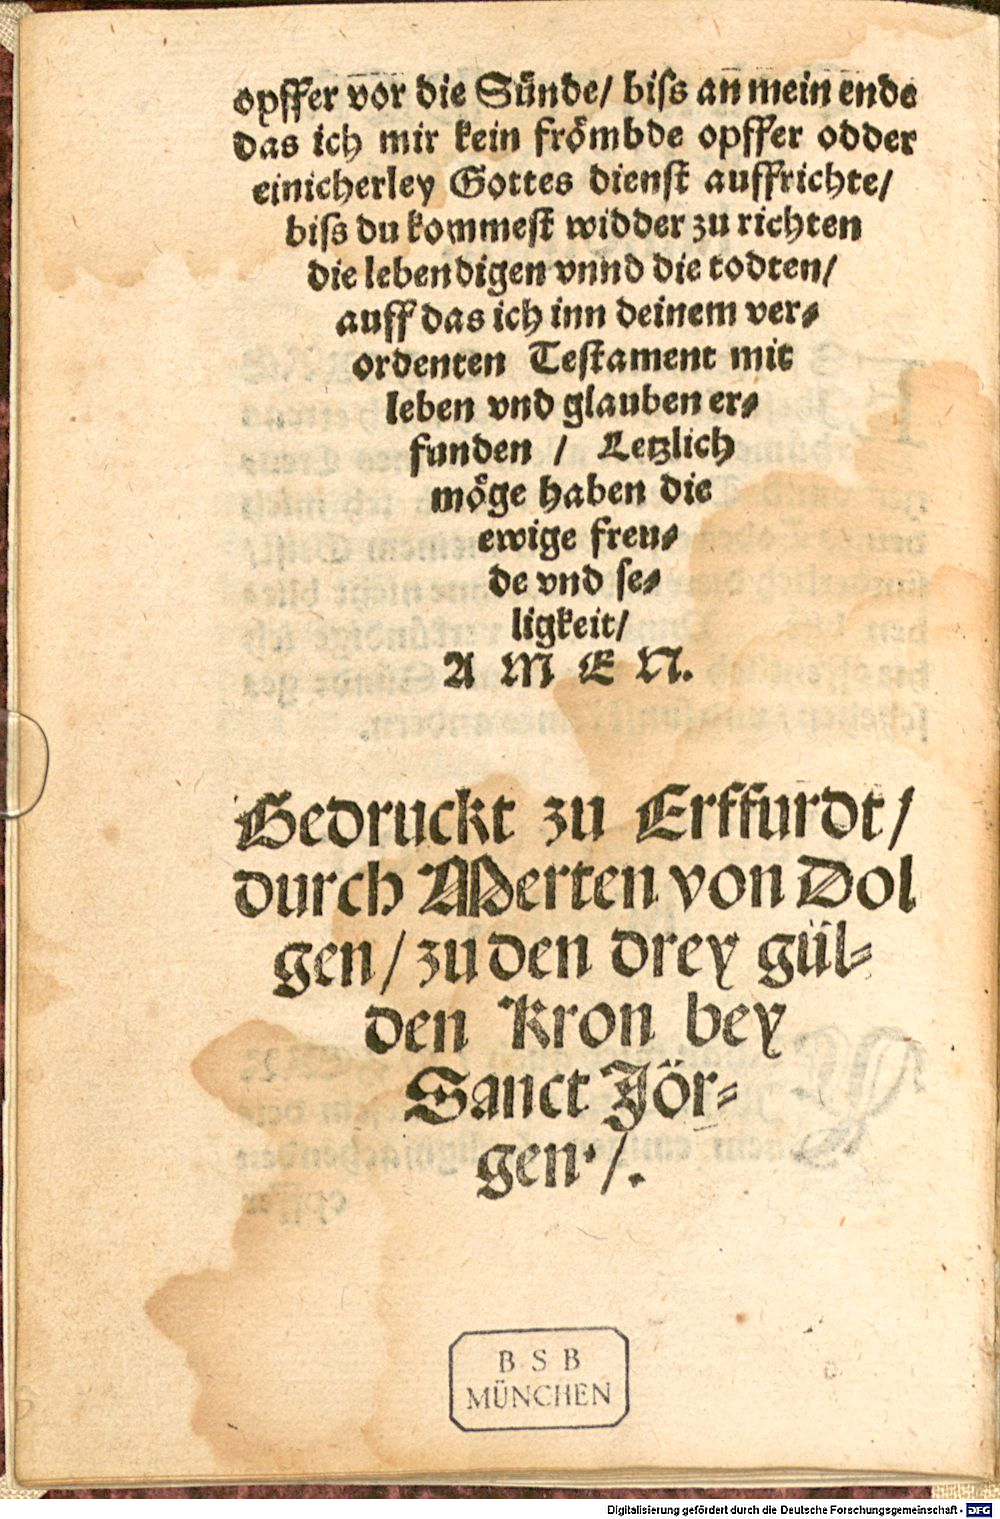 opffer vor die Sünde/ biſs an mein ende
das ich mir kein frömbde opffer odder
einicherley Gottes dienſt auffrichte/
biſs du kommeſt widder zu richten
die lebendigen vnnd die todten/
auff das ich inn deinem ver⸗
ordenten Teſtament mit
leben vnd glauben er⸗
funden / Letzlich
möge haben die
ewige freu⸗
de vnd ſe⸗
ligkeit/
A M E N.
Gedruckt zu Erffurdt/
durch Merten von Dol
gen/ zu den drey gül⸗
den Kron bey
Sanct Jör⸗
gen·/.
B S B
MÜNCHEN
Digitalisierung gefördert durch die Deutsche Forschungsgemeinschaft - DFG